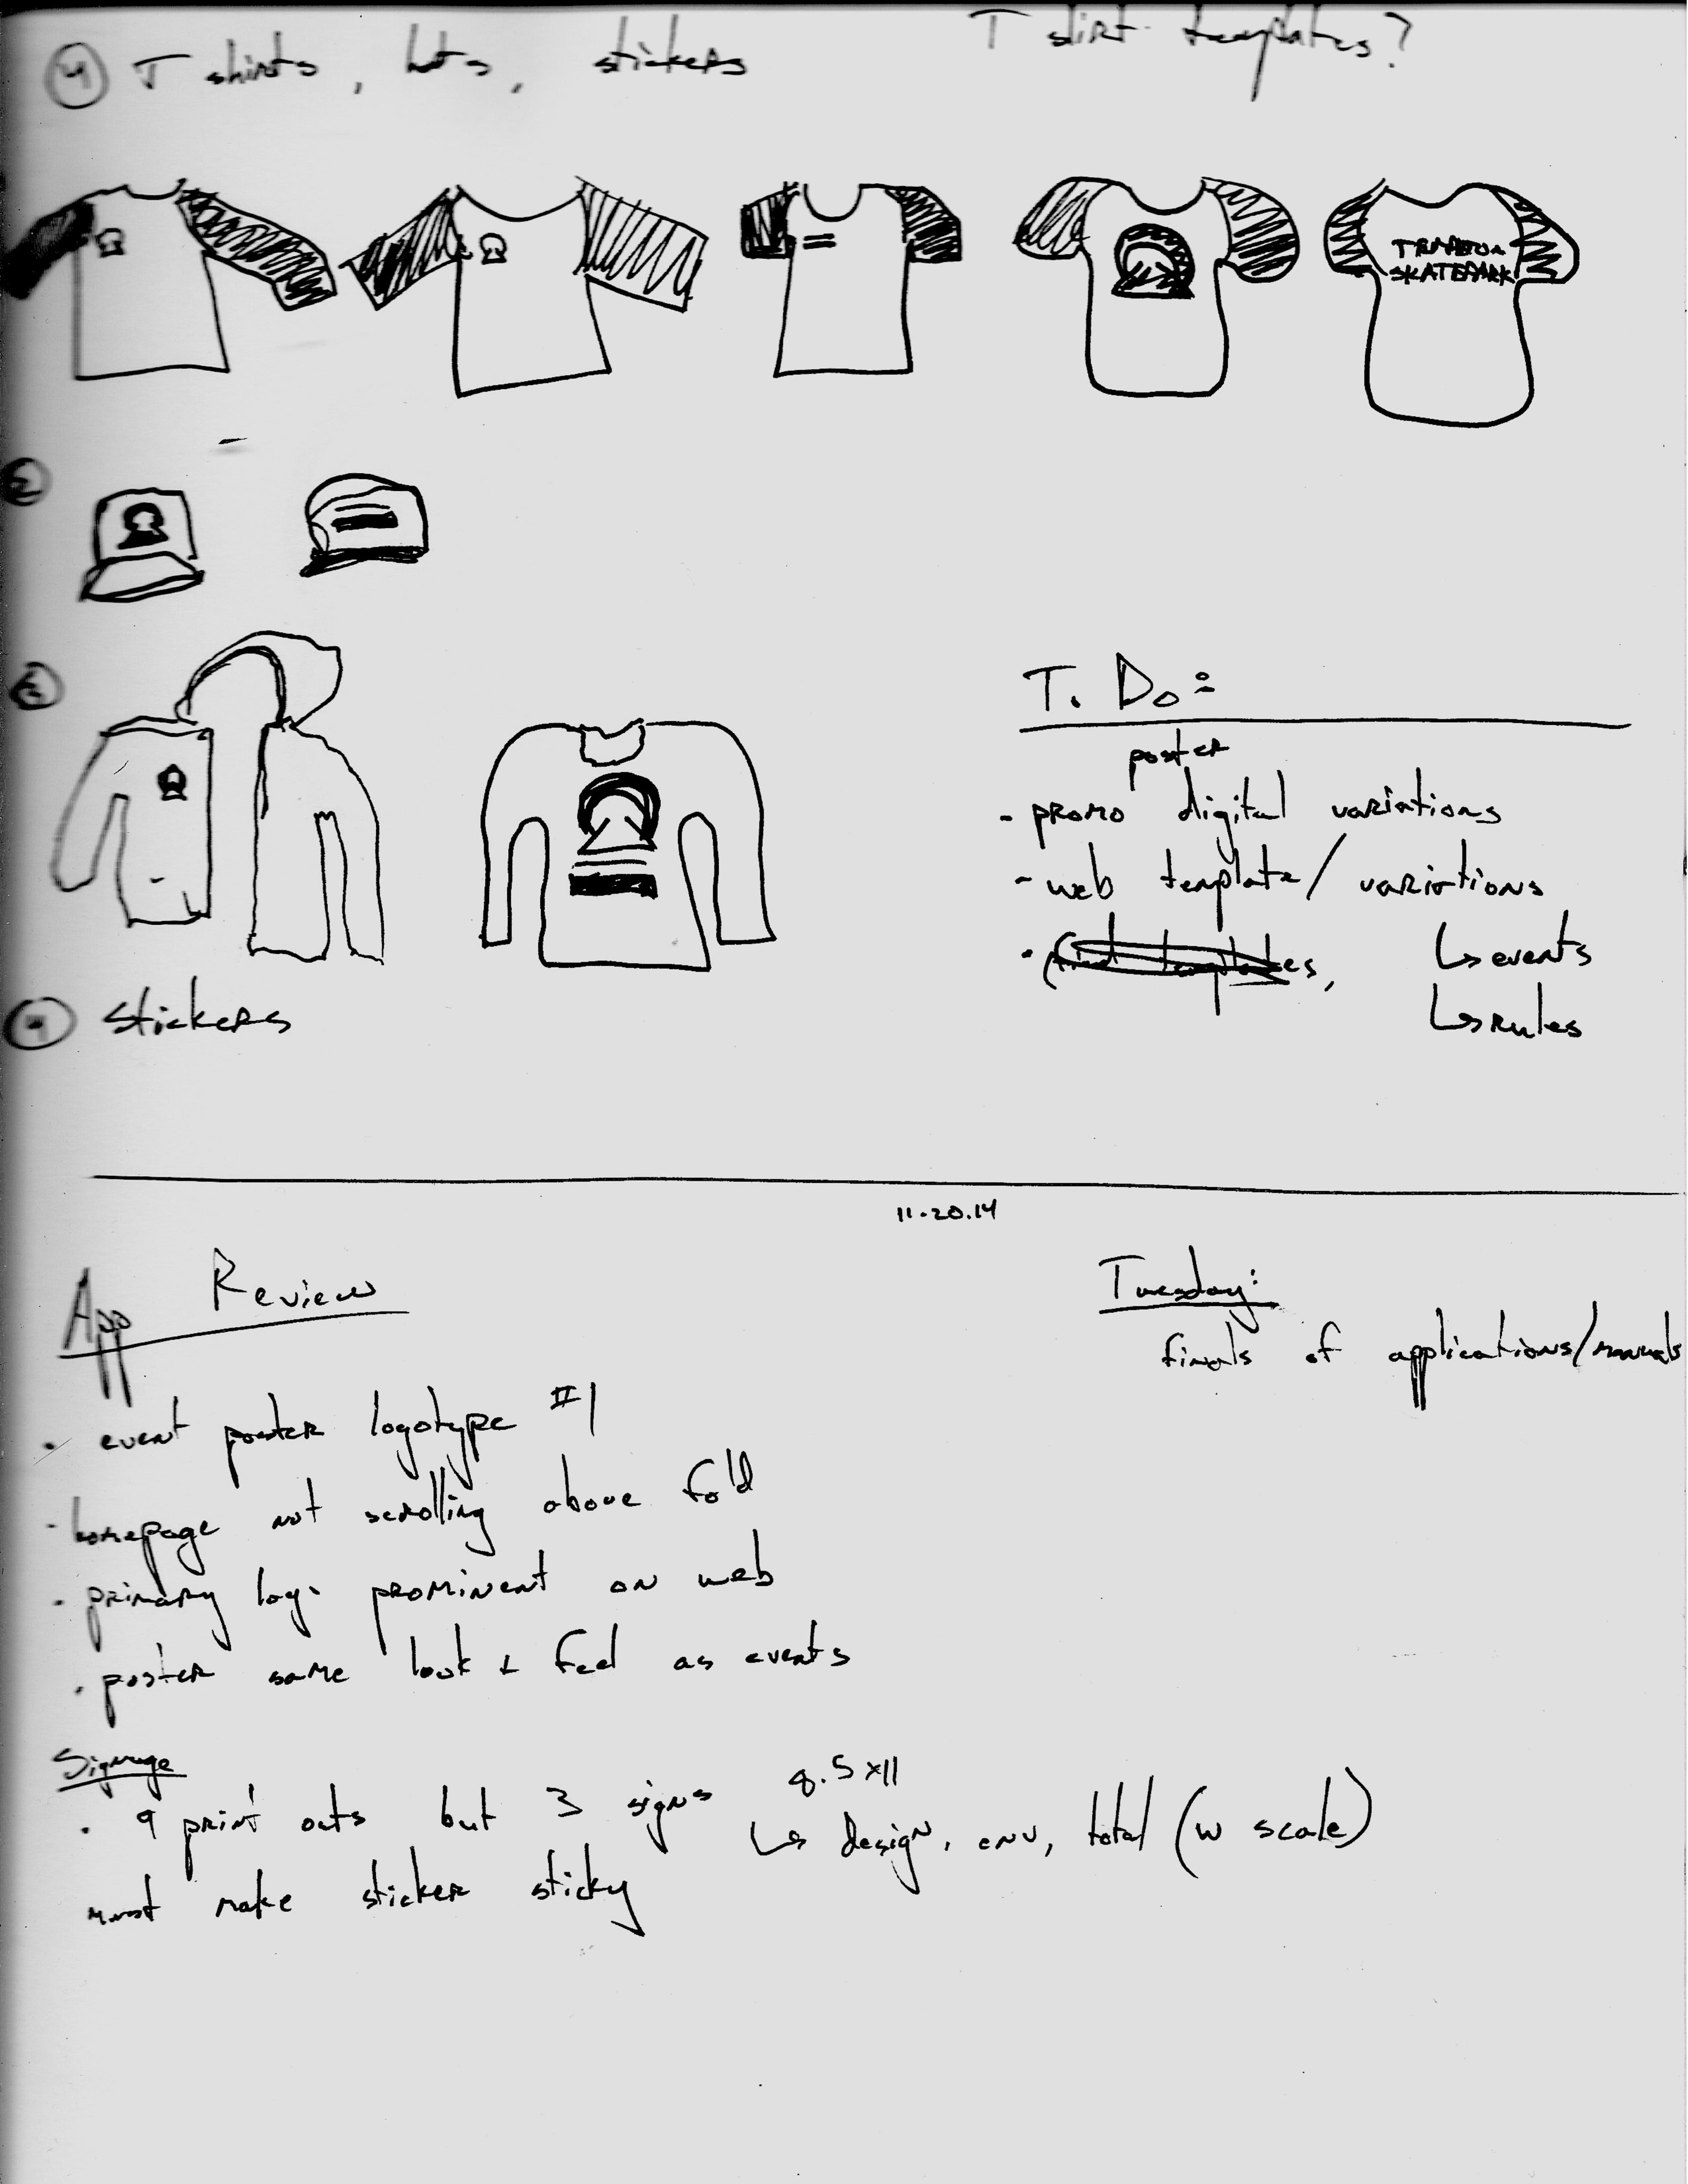 ④ T shirts, hats, stickers
T shirt templates?
TEMPLETON
SKATEPARK
②
③
T. Do:
poster
- promo digital variations
- web template/variations
· find templates,
↳ events
↳ rules
④ stickers
11.20.14
App Review
Tuesday:
finals of applications/manuals
· event poster logotype #1
· homepage not scrolling above fold
· primary logo prominent on web
· poster same look + feel as events
Signage
· 9 print outs but 3 signs
8.5x11
↳ design, env, total (w scale)
must make sticker sticky